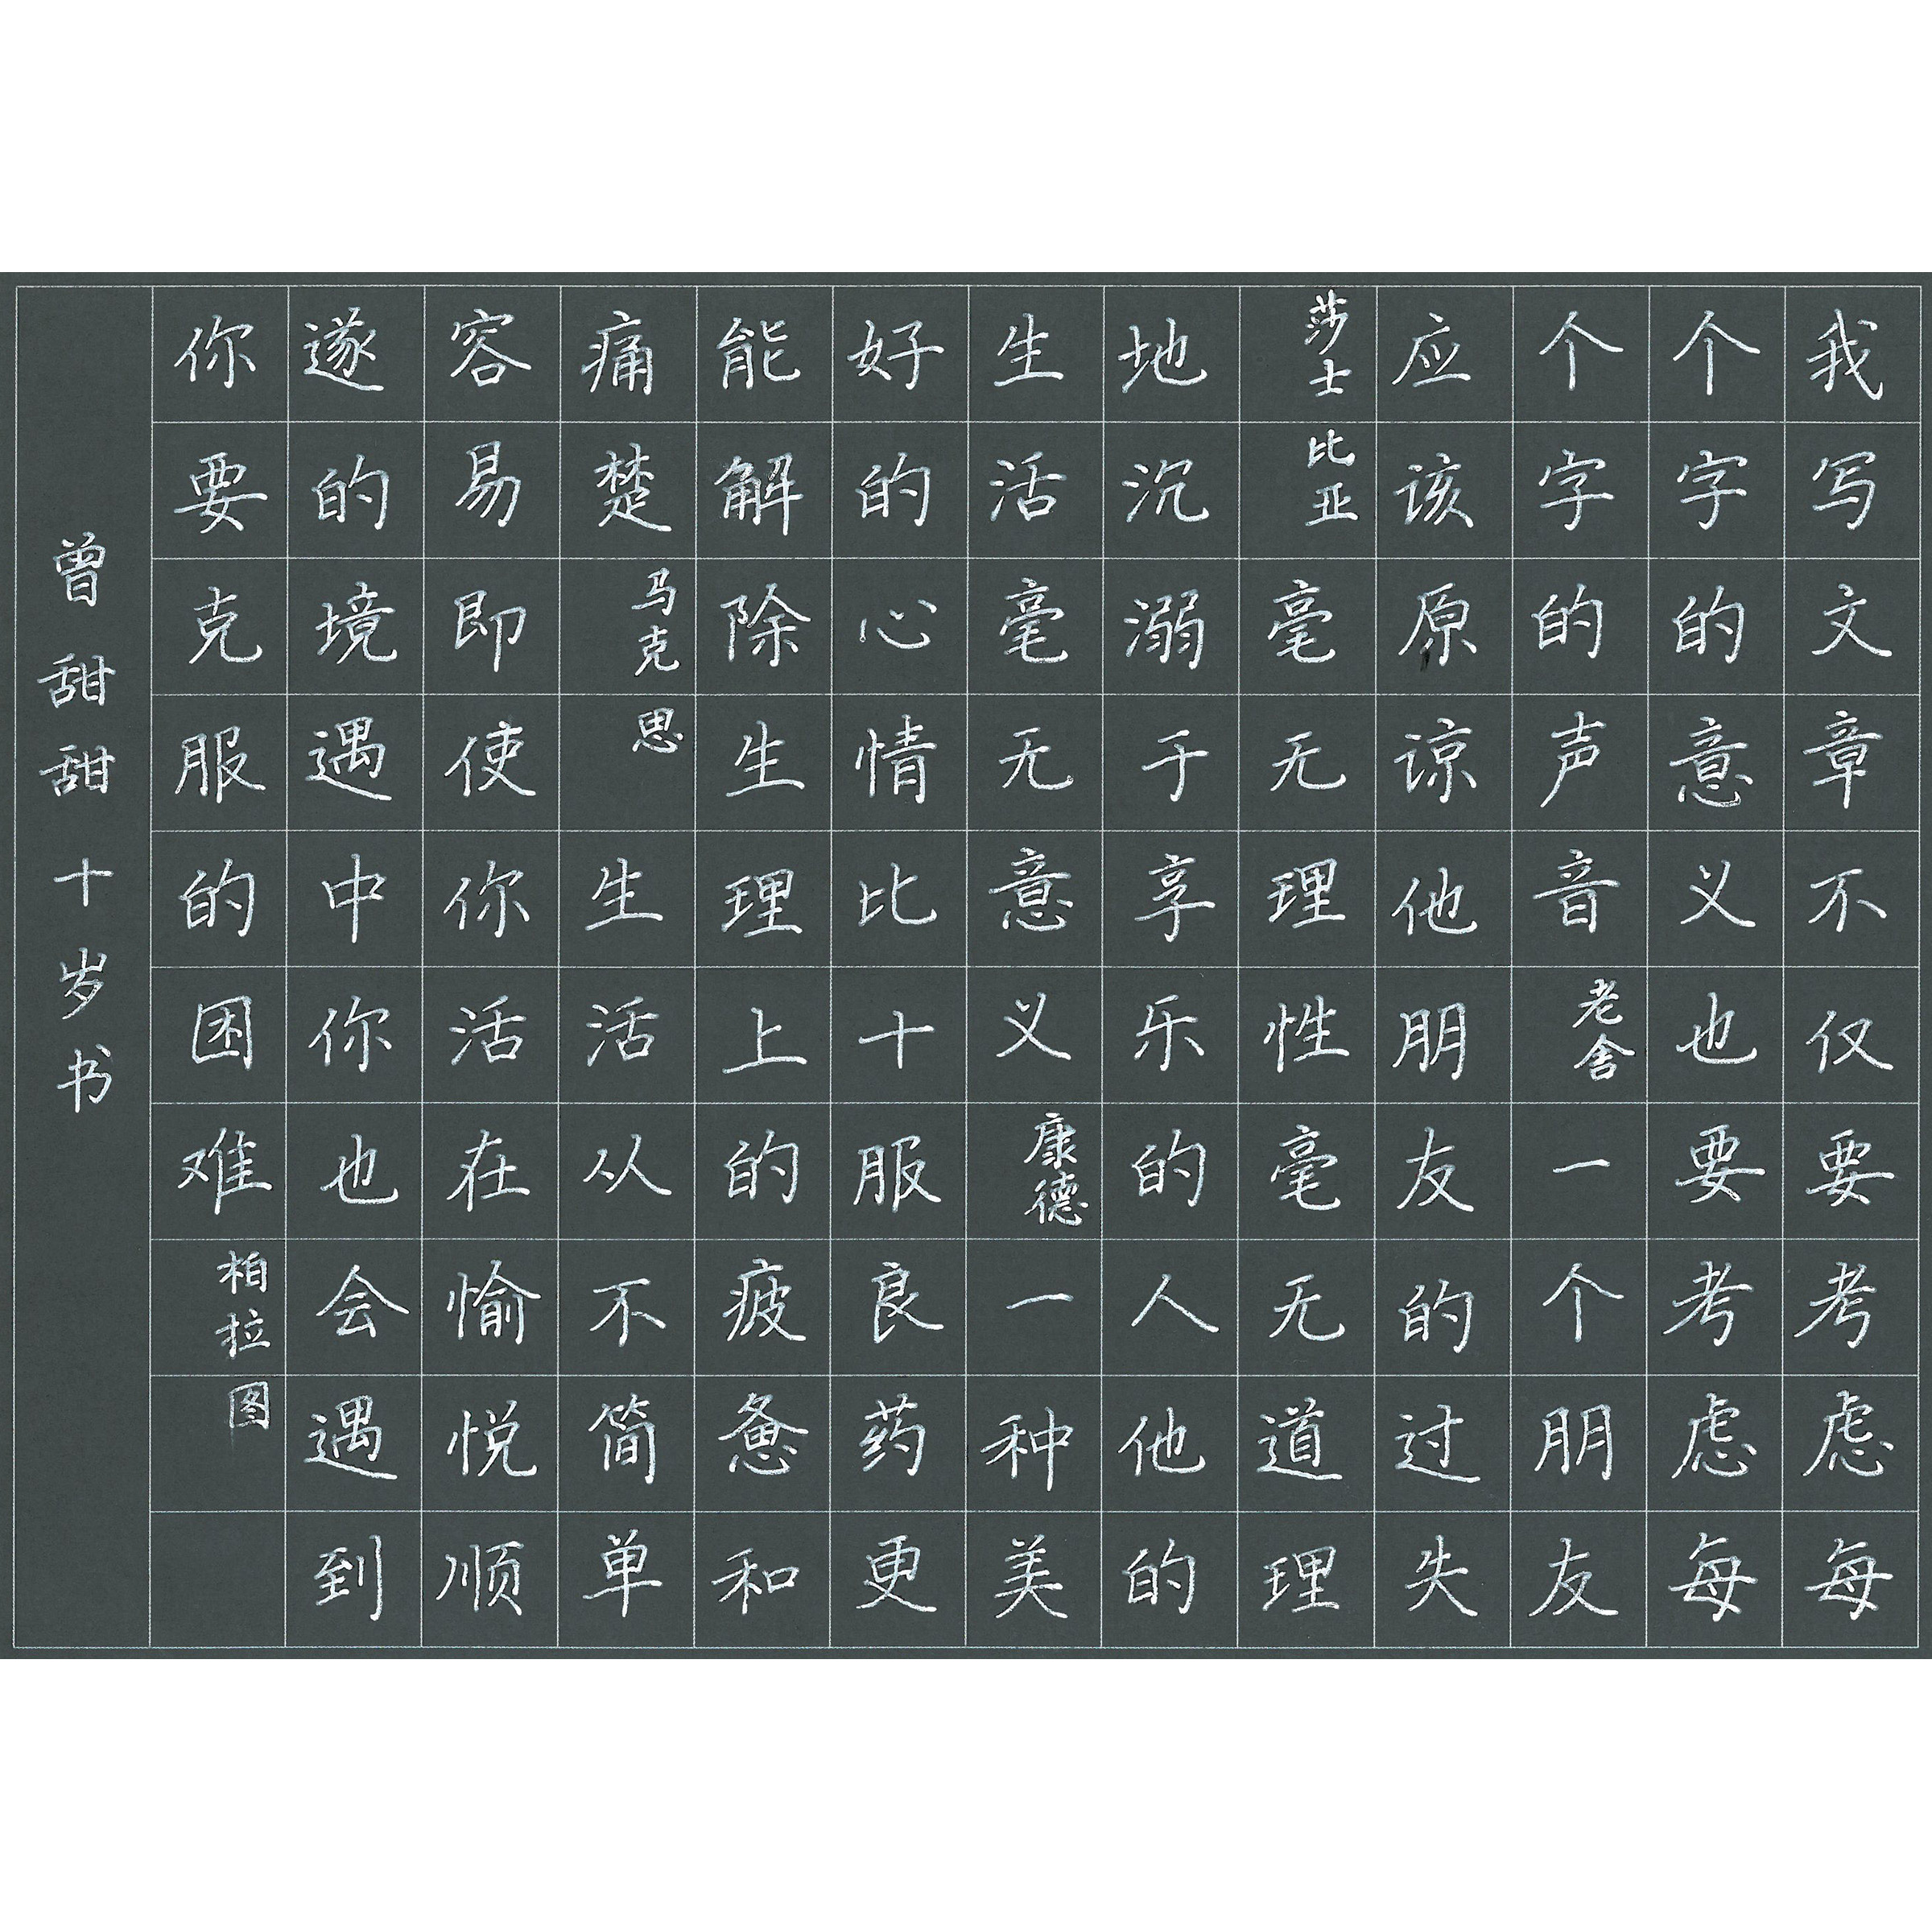 我写文章不仅要考虑每
个字的意义也要考虑每
个字的声音老舍一个朋友
应该原谅他朋友的过失
莎士比亚毫无理性毫无道理
地沉溺于享乐的人他的
生活毫无意义康德一种美
好的心情比十服良药更
能解除生理上的疲惫和
痛楚马克思生活从不简单
容易即使你活在愉悦顺
遂的境遇中你也会遇到
你要克服的困难柏拉图
曾甜甜十岁书